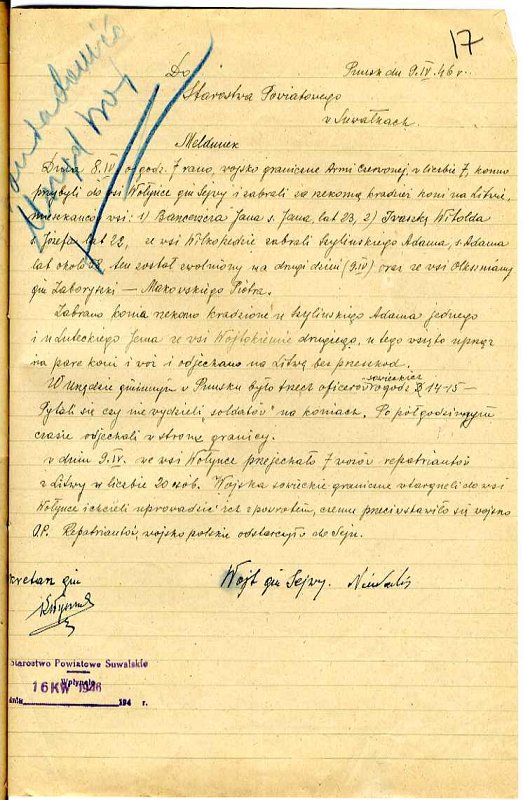 17
Zawiadomić
Urząd Woj
Do Puńsk dn 9.IV.46 r.
Starostwa Powiatowego
w Suwałkach.
Meldunek
Dnia 8.IV o godz. 7 rano, wojsko graniczne Armi Czerwonej w liczbie 7, konno
przybyli do wsi Wołyńce gm Sejwy i zabrali za rzekomą kradzież koni na Litwie,
mieszkańca wsi: 1) Jana s. Jana, lat 23, 2) Witolda
Józefa lat 22, ze wsi Wiłkopedzie zabrali Szylinskiego Adama, s. Adama
lat około ten został zwolniony na drugi dzień (9.IV) oraz ze wsi Olksniany
gm Zaboryszki — Makowskiego Piotra.
Zabrano konia rzekomo kradzione u Szylinskiego Adama jednego
i u Luteckiego ze wsi Wojtokiemie drugiego, u tego wzięto uprząż
na parę koni i wóz i odjechano na Litwę bez przeszkod.
W Urzędzie gminnym w Puńsku było trzech oficerów sowieckich o godz 14-15 —
Pytali się czy nie wydzieli „soldatów" na koniach. Po półgodzinnym
czasie odjechali w stronę granicy.
w dniu 9.IV. we wsi Wołyńce przejechało 7 wozów repatriantów
z Litwy w liczbie 20 osób. Wojska sowieckie graniczne wtargneli do wsi
Wołyńce i chcieli uprowadzić ich z powrotem, czemu przeciwstawiło się wojsko
O.P. Repatriantów, wojsko polskie odstarczyło do Sejn.
kretarz gm Wójt gm Sejwy.
Starostwo Powiatowe Suwalskie
Wpłynęło
16 KW 1946
dnia 194 r.